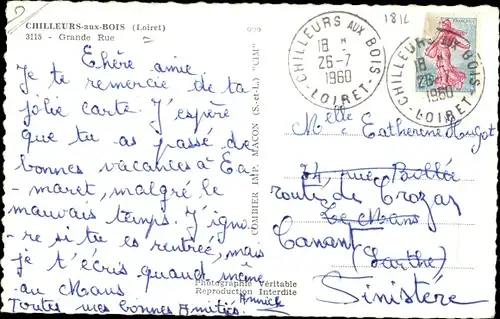 CHILLEURS-aux-BOIS (Loiret)
3115 - Grande Rue
Chère amie
Je te remercie de ta
jolie carte. J'espère
que tu as passé de
bonnes vacances à Ca-
maret, malgré le
mauvais temps. J'igno-
re si tu es rentrée, mais
je t'écris quand même
au Mans
Toutes mes bonnes Amitiés.
Annick
COMBIER IMP. MACON (S.-et-L.) "CIM"
Photographie Véritable
Reproduction Interdite
CHILLEURS AUX BOIS
18 H
26-7
1960
LOIRET
CHILLEURS AUX BOIS
18
26
1960
LOIRET
1812
Melle Catherine
34, rue Bollée
route de Crozon
Le Mans
(Sarthe)
Finistère